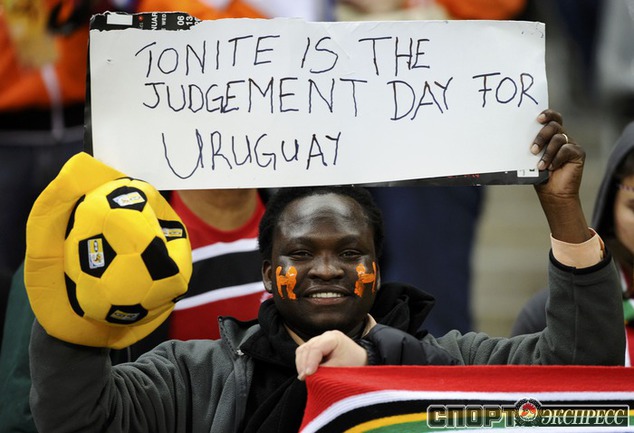 TONITE IS THE
JUDGEMENT DAY FOR
URUGUAY
СПОРТ ЭКСПРЕСС